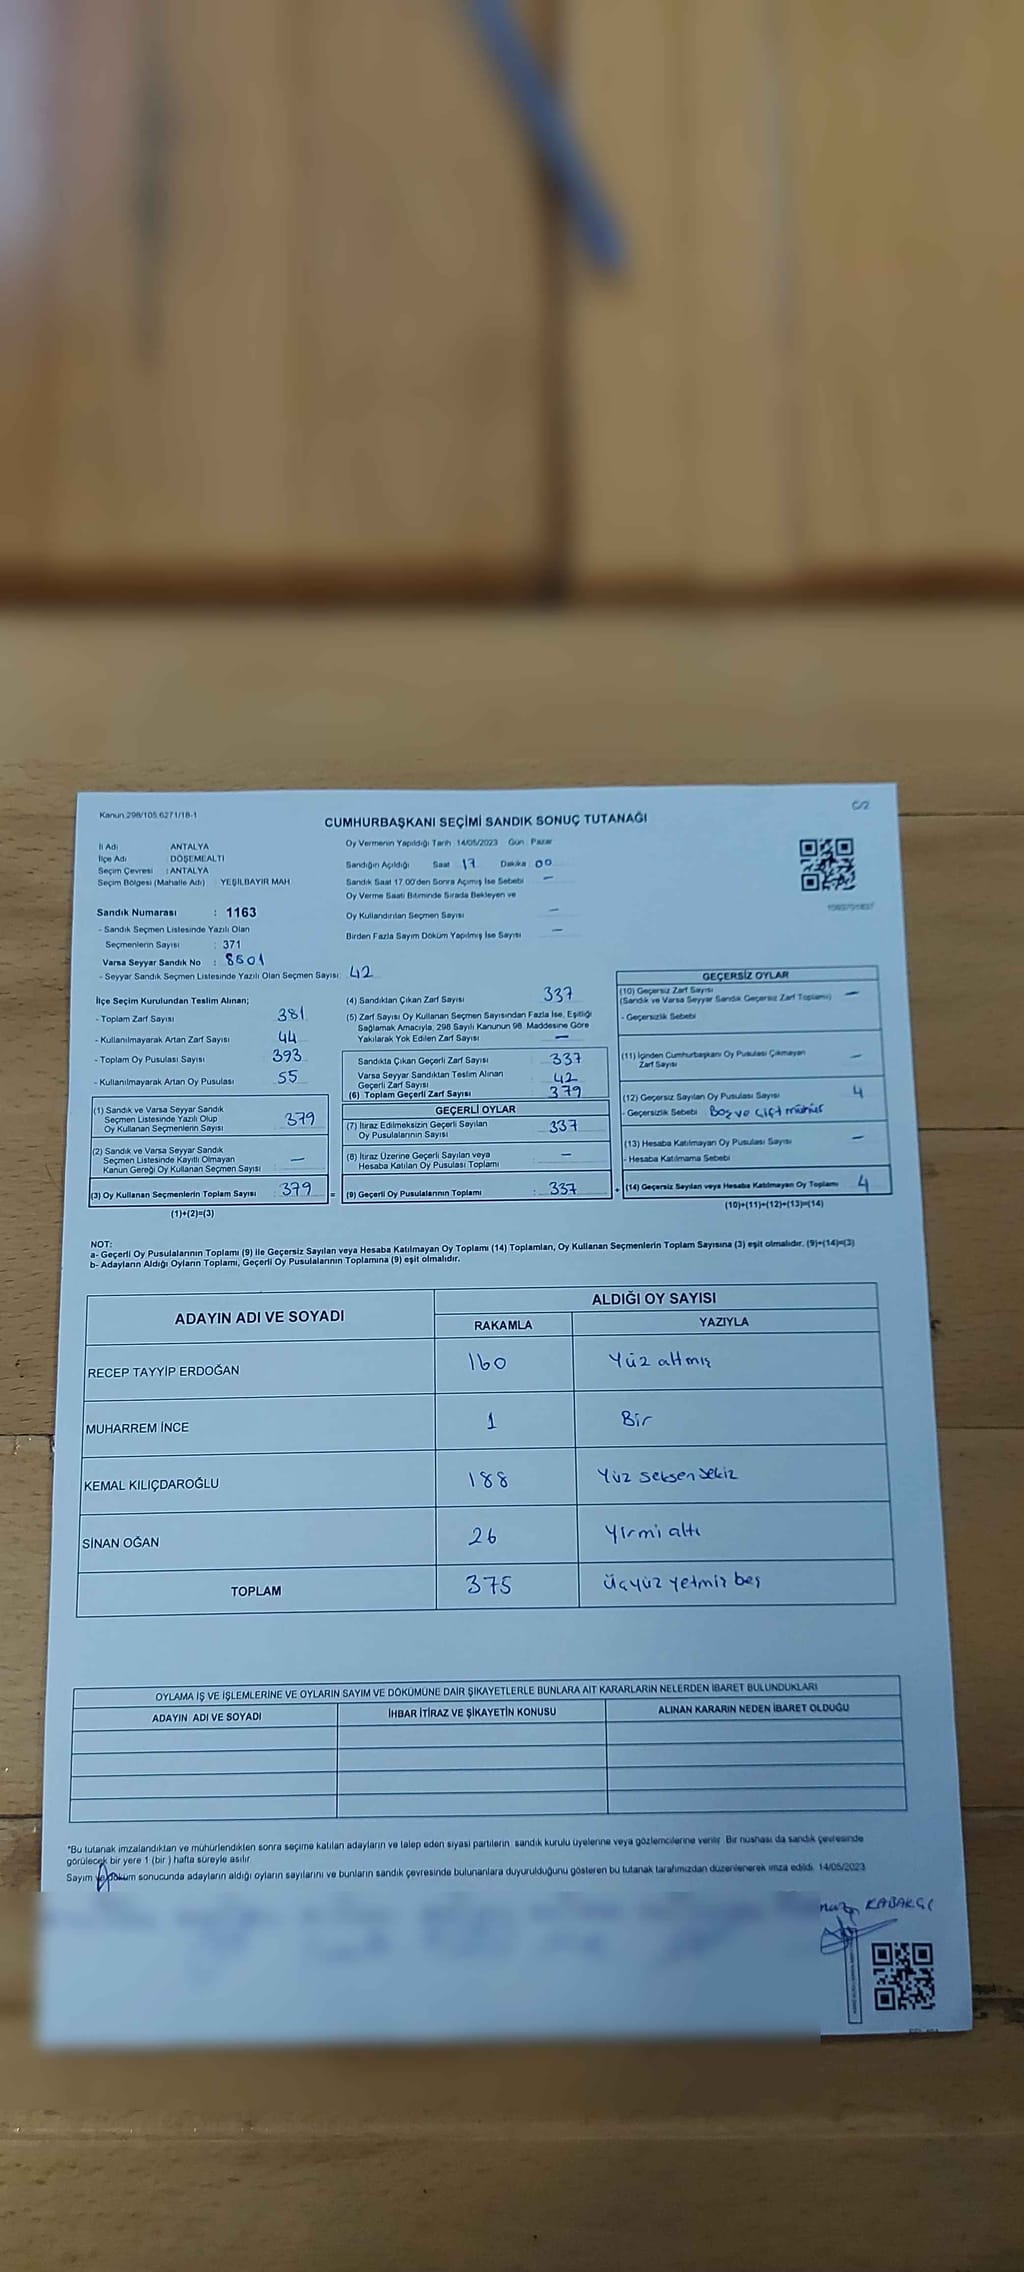 Kanun.298/105.6271/18-1
C/2
CUMHURBAŞKANI SEÇİMİ SANDIK SONUÇ TUTANAĞI
İl Adı : ANTALYA
İlçe Adı : DÖŞEMEALTI
Seçim Çevresi : ANTALYA
Seçim Bölgesi (Mahalle Adı) : YEŞİLBAYIR MAH
Oy Vermenin Yapıldığı Tarih 14/05/2023 Gün Pazar
Sandığın Açıldığı Saat 17 Dakika 00
Sandık Saat 17 00'den Sonra Açımış İse Sebebi —
Oy Verme Saati Bitiminde Sırada Bekleyen ve
Oy Kullandırılan Seçmen Sayısı —
Birden Fazla Sayım Döküm Yapılmış İse Sayısı —
Sandık Numarası : 1163
- Sandık Seçmen Listesinde Yazılı Olan
Seçmenlerin Sayısı : 371
Varsa Seyyar Sandık No : 8501
- Seyyar Sandık Seçmen Listesinde Yazılı Olan Seçmen Sayısı: 42
İlçe Seçim Kurulundan Teslim Alınan;
- Toplam Zarf Sayısı 381
- Kullanılmayarak Artan Zarf Sayısı 44
- Toplam Oy Pusulası Sayısı 393
- Kullanılmayarak Artan Oy Pusulası 55
(1) Sandık ve Varsa Seyyar Sandık
Seçmen Listesinde Yazılı Olup
Oy Kullanan Seçmenlerin Sayısı 379
(2) Sandık ve Varsa Seyyar Sandık
Seçmen Listesinde Kayıtlı Olmayan
Kanun Gereği Oy Kullanan Seçmen Sayısı —
(3) Oy Kullanan Seçmenlerin Toplam Sayısı 379 =
(1)+(2)=(3)
(4) Sandıktan Çıkan Zarf Sayısı 337
(5) Zarf Sayısı Oy Kullanan Seçmen Sayısından Fazla İse, Eşitliği
Sağlamak Amacıyla, 298 Sayılı Kanunun 98. Maddesine Göre
Yakılarak Yok Edilen Zarf Sayısı —
Sandıkta Çıkan Geçerli Zarf Sayısı 337
Varsa Seyyar Sandıktan Teslim Alınan
Geçerli Zarf Sayısı 42
(6) Toplam Geçerli Zarf Sayısı 379
GEÇERLİ OYLAR
(7) İtiraz Edilmeksizin Geçerli Sayılan
Oy Pusulalarının Sayısı 337
(8) İtiraz Üzerine Geçerli Sayılan veya
Hesaba Katılan Oy Pusulası Toplamı —
(9) Geçerli Oy Pusulalarının Toplamı : 337 +
GEÇERSİZ OYLAR
(10) Geçersiz Zarf Sayısı
(Sandık ve Varsa Seyyar Sandık Geçersiz Zarf Toplamı) —
- Geçersizlik Sebebi
(11) İçinden Cumhurbaşkanı Oy Pusulası Çıkmayan
Zarf Sayısı —
(12) Geçersiz Sayılan Oy Pusulası Sayısı 4
- Geçersizlik Sebebi Boş ve çift mühür
(13) Hesaba Katılmayan Oy Pusulası Sayısı —
- Hesaba Katılmama Sebebi
(14) Geçersiz Sayılan veya Hesaba Katılmayan Oy Toplamı 4
(10)+(11)+(12)+(13)=(14)
NOT:
a- Geçerli Oy Pusulalarının Toplamı (9) ile Geçersiz Sayılan veya Hesaba Katılmayan Oy Toplamı (14) Toplamları, Oy Kullanan Seçmenlerin Toplam Sayısına (3) eşit olmalıdır. (9)+(14)=(3)
b- Adayların Aldığı Oyların Toplamı, Geçerli Oy Pusulalarının Toplamına (9) eşit olmalıdır.
ADAYIN ADI VE SOYADI
ALDIĞI OY SAYISI
RAKAMLA YAZIYLA
RECEP TAYYİP ERDOĞAN 160 Yüz altmış
MUHARREM İNCE 1 Bir
KEMAL KILIÇDAROĞLU 188 Yüz seksen sekiz
SİNAN OĞAN 26 Yirmi altı
TOPLAM 375 Üçyüz yetmiş beş
OYLAMA İŞ VE İŞLEMLERİNE VE OYLARIN SAYIM VE DÖKÜMÜNE DAİR ŞİKAYETLERLE BUNLARA AİT KARARLARIN NELERDEN İBARET BULUNDUKLARI
ADAYIN ADI VE SOYADI İHBAR İTİRAZ VE ŞİKAYETİN KONUSU ALINAN KARARIN NEDEN İBARET OLDUĞU
*Bu tutanak imzalandıktan ve mühürlendikten sonra seçime katılan adayların ve talep eden siyasi partilerin sandık kurulu üyelerine veya gözlemcilerine verilir. Bir nüshası da sandık çevresinde
görülecek bir yere 1 (bir ) hafta süreyle asılır.
Sayım ve döküm sonucunda adayların aldığı oyların sayılarını ve bunların sandık çevresinde bulunanlara duyurulduğunu gösteren bu tutanak tarafımızdan düzenlenerek imza edildi. 14/05/2023
KABAKÇI